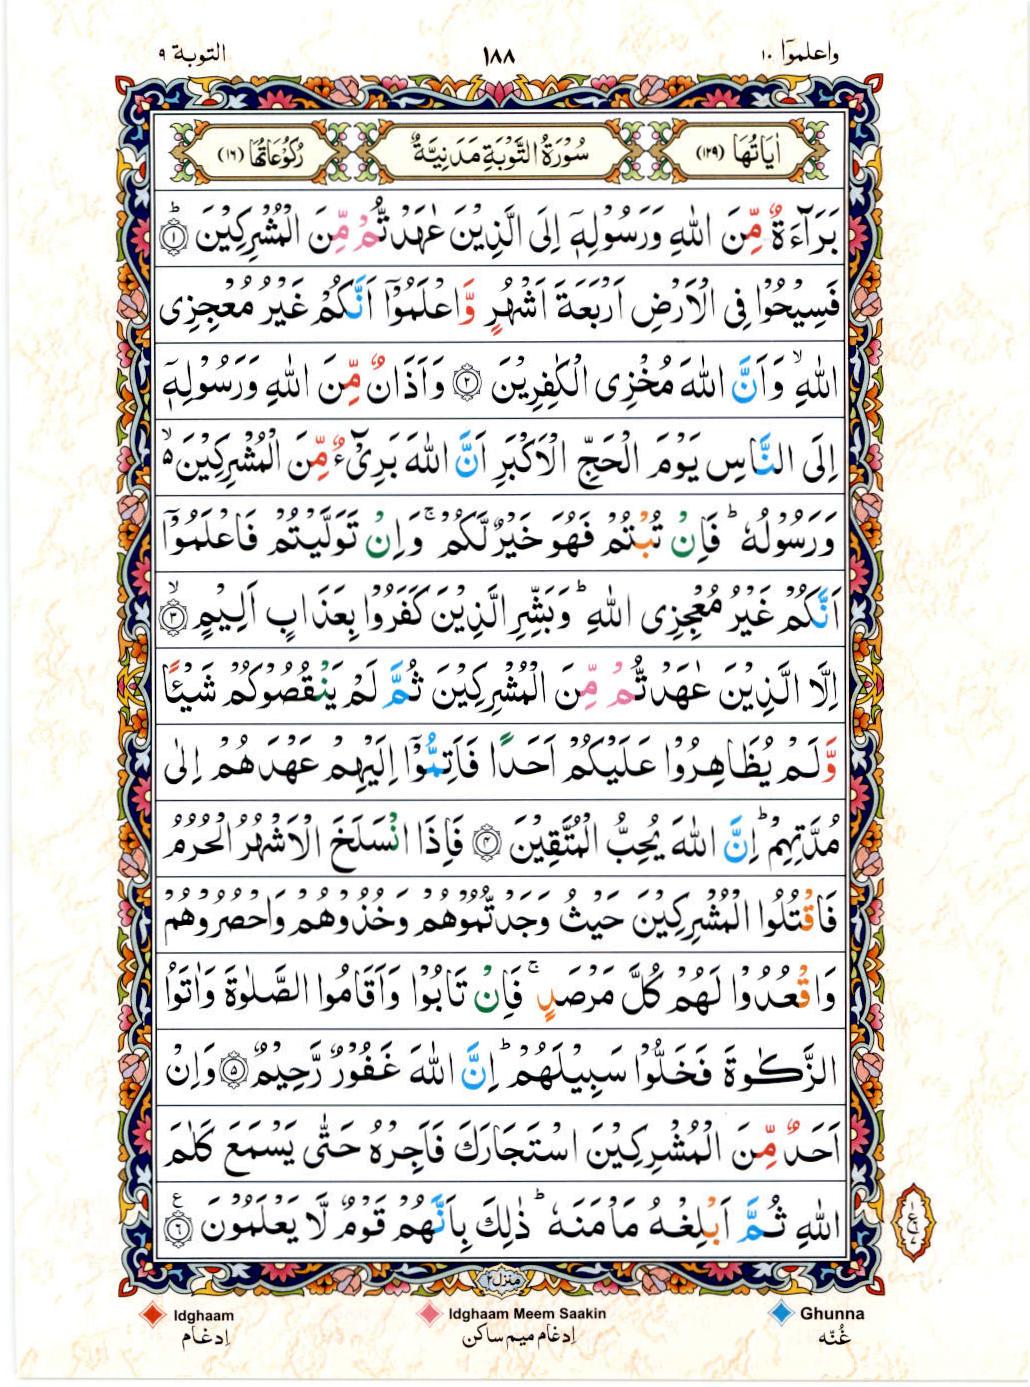 واعلموٓا ١٠
١٨٨
التوبة ٩
اٰيَاتُهَا (١٢٩)
سُوۡرَةُ التَّوۡبَةِ مَدَنِيَّةٌ
رُكُوۡعَاتُهَا (١٦)
بَرَآءَةٌ مِّنَ اللّٰهِ وَرَسُوۡلِهٖۤ اِلَى الَّذِيۡنَ عٰهَدْتُّمۡ مِّنَ الۡمُشۡرِكِيۡنَ ؕ‏ ﴿١﴾
فَسِيۡحُوۡا فِى الۡاَرۡضِ اَرۡبَعَةَ اَشۡهُرٍ وَّاعۡلَمُوۡۤا اَنَّكُمۡ غَيۡرُ مُعۡجِزِى
اللّٰهِ‌ۙ وَاَنَّ اللّٰهَ مُخۡزِى الۡكٰفِرِيۡنَ ﴿٢﴾ وَاَذَانٌ مِّنَ اللّٰهِ وَرَسُوۡلِهٖۤ
اِلَى النَّاسِ يَوۡمَ الۡحَجِّ الۡاَكۡبَرِ اَنَّ اللّٰهَ بَرِىۡۤءٌ مِّنَ الۡمُشۡرِكِيۡنَ ۙ
وَرَسُوۡلُهٗ‌ ؕ فَاِنۡ تُبۡتُمۡ فَهُوَ خَيۡرٌ لَّـكُمۡ‌ ۚ وَاِنۡ تَوَلَّيۡتُمۡ فَاعۡلَمُوۡۤا
اَنَّكُمۡ غَيۡرُ مُعۡجِزِى اللّٰهِ‌ ؕ وَبَشِّرِ الَّذِيۡنَ كَفَرُوۡا بِعَذَابٍ اَلِيۡمٍۙ‏ ﴿٣﴾
اِلَّا الَّذِيۡنَ عٰهَدْتُّمۡ مِّنَ الۡمُشۡرِكِيۡنَ ثُمَّ لَمۡ يَنۡقُصُوۡكُمۡ شَيۡئًا
وَّلَمۡ يُظَاهِرُوۡا عَلَيۡكُمۡ اَحَدًا فَاَتِمُّوۡۤا اِلَيۡهِمۡ عَهۡدَهُمۡ اِلٰى
مُدَّتِهِمۡ‌ؕ اِنَّ اللّٰهَ يُحِبُّ الۡمُتَّقِيۡنَ ﴿٤﴾ فَاِذَا انْسَلَخَ الۡاَشۡهُرُ الۡحُرُمُ
فَاقۡتُلُوا الۡمُشۡرِكِيۡنَ حَيۡثُ وَجَدْتُّمُوۡهُمۡ وَخُذُوۡهُمۡ وَاحۡصُرُوۡهُمۡ
وَاقۡعُدُوۡا لَهُمۡ كُلَّ مَرۡصَدٍ‌ ۚ فَاِنۡ تَابُوۡا وَاَقَامُوا الصَّلٰوةَ وَاٰتَوُا
الزَّكٰوةَ فَخَلُّوۡا سَبِيۡلَهُمۡ‌ ؕ اِنَّ اللّٰهَ غَفُوۡرٌ رَّحِيۡمٌ ﴿٥﴾ وَاِنۡ
اَحَدٌ مِّنَ الۡمُشۡرِكِيۡنَ اسۡتَجَارَكَ فَاَجِرۡهُ حَتّٰى يَسۡمَعَ كَلٰمَ
اللّٰهِ ثُمَّ اَبۡلِغۡهُ مَاۡمَنَهٗ‌ ؕ ذٰلِكَ بِاَنَّهُمۡ قَوۡمٌ لَّا يَعۡلَمُوۡنَ ﴿٦﴾ ع
منزل ٢
Idghaam
Idghaam Meem Saakin
Ghunna
اِدغام
اِدغام میم ساکن
غُنّه